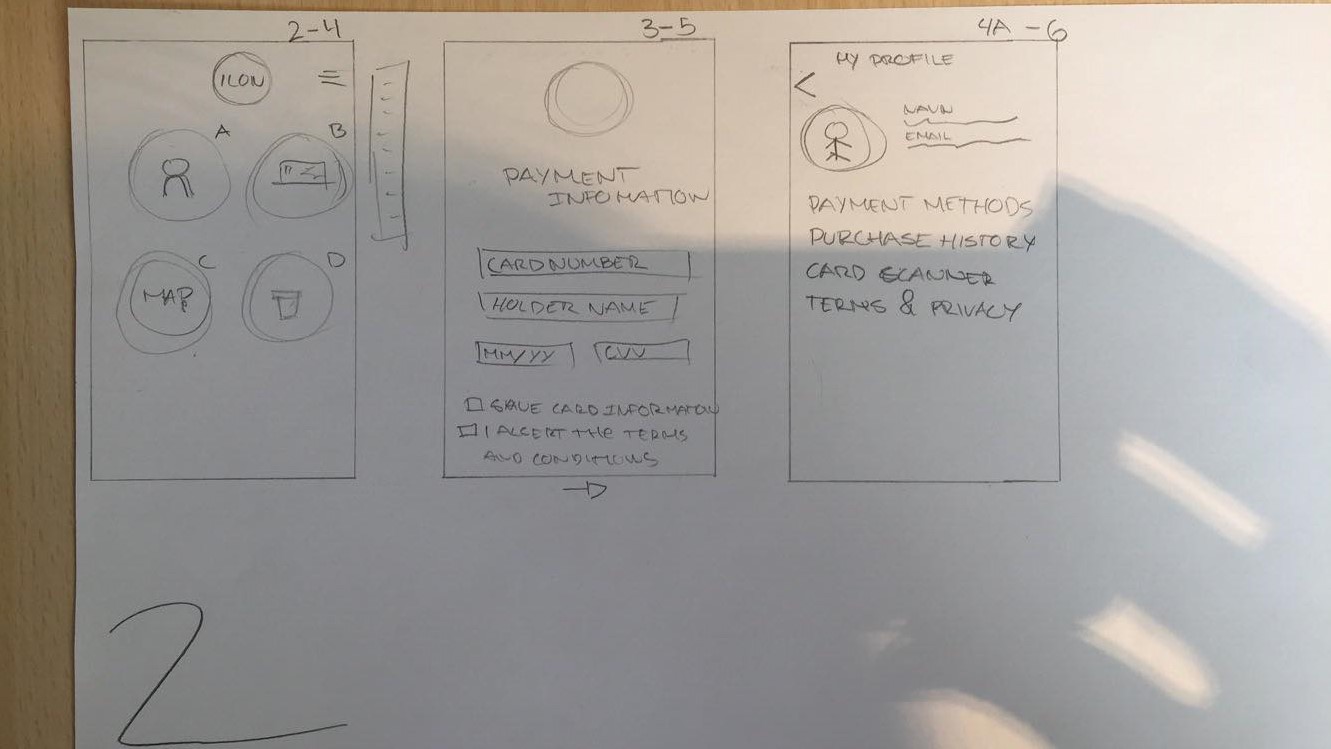 2-4
ICON
A
B
C
MAP
D
3-5
PAYMENT
INFOMATION
CARDNUMBER
HOLDER NAME
MM/YY
CVV
SAVE CARD INFORMATION
I ACCEPT THE TERMS
AND CONDITIONS
4A - 6
MY PROFILE
NAVN
EMAIL
PAYMENT METHODS
PURCHASE HISTORY
CARD SCANNER
TERMS & PRIVACY
2